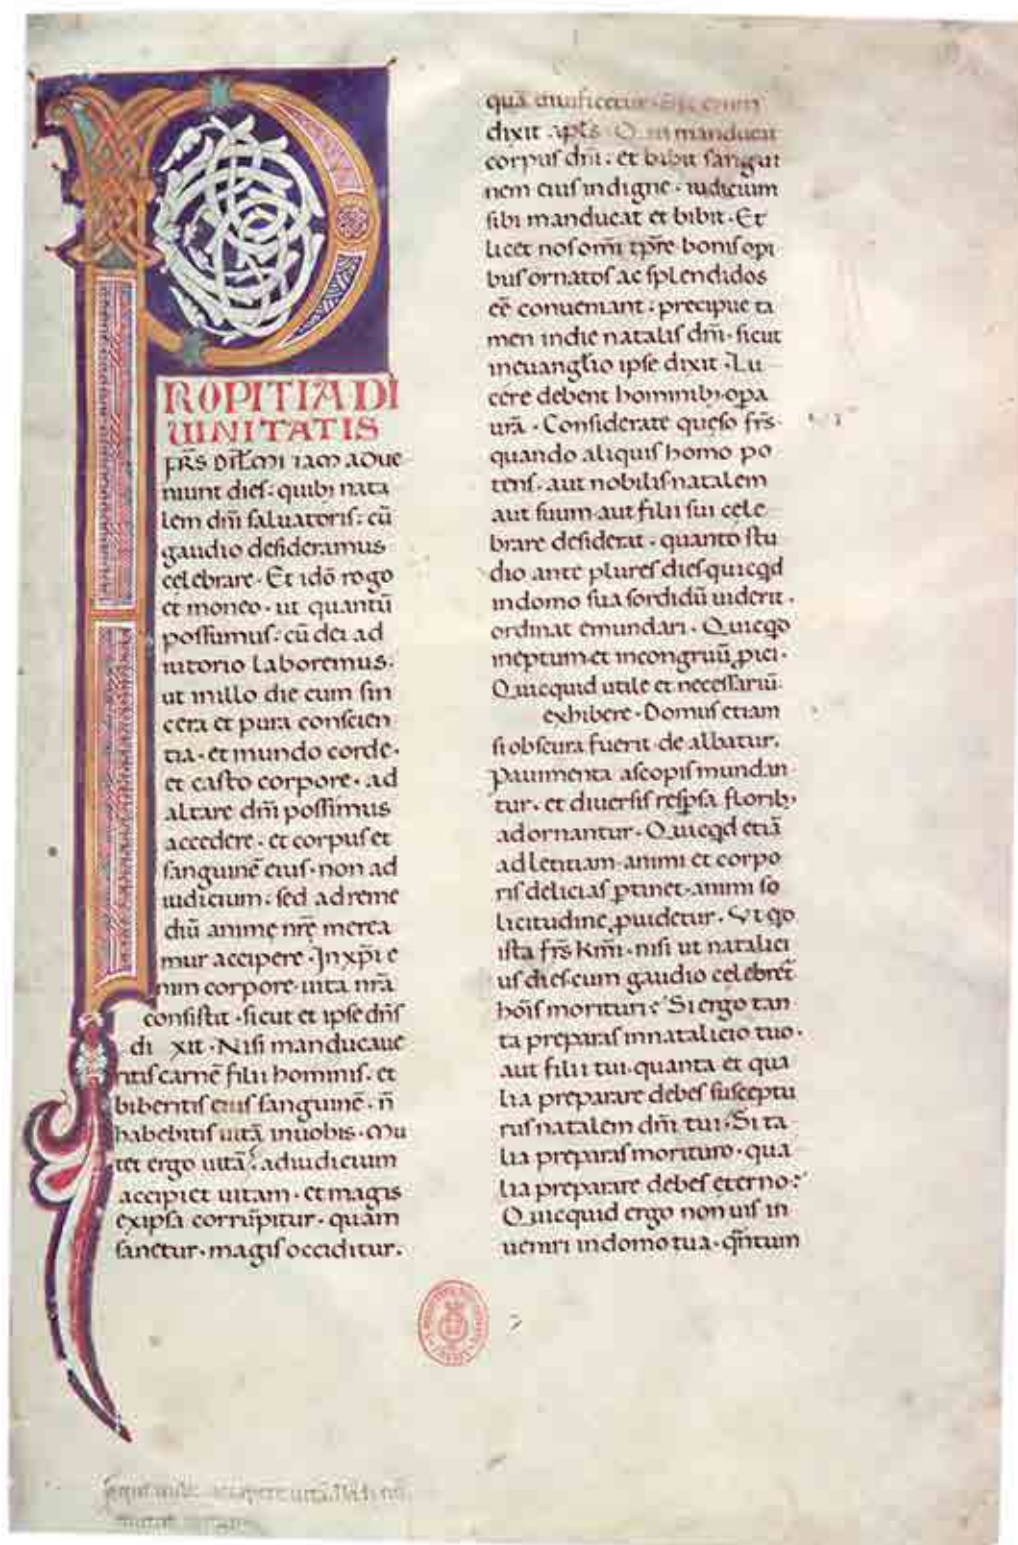 P
ROPITIA DI
UINITATIS
FR̄S DIL̄MI IAM ADUE
niunt dies· quibꝫ nata
lem dñi saluatoris· cū
gaudio desideramus
celebrare· Et idō rogo
et moneo· ut quantū
possumus· cū dei ad
iutorio laboremus·
ut in illo die cum sin
cera et pura conscien
tia· et mundo corde·
et casto corpore· ad
altare dñi possimus
accedere· et corpus et
sanguinē eius· non ad
iudicium· sed ad reme
diū animę nr̄ę merea
mur accipere· In xp̄i e
nim corpore· uita nr̄a
consistit· sicut et ipse dñs
dixit· Nisi manducaue
ritis carnē filii hominis· et
biberitis eius sanguinē· ñ
habebitis uitā in uobis· Mu
tet ergo uitā· ad iudicium
accipiet uitam· et magis
ex ipsa corrūpitur· quam
sanetur· magis occiditur·
quā uiuificetur· Sic enim
dixit apl̄s· Qui manducat
corpus dñi· et bibit sangui
nem eius indigne· iudicium
sibi manducat et bibit· Et
licet nos om̄i tp̄re bonis opi
bus ornatos ac splendidos
eē conueniant· precipue ta
men in die natalis dñi· sicut
in euanglio ipse dixit· Lu
cere debent hominibꝫ opa
urā· Considerate quęso fr̄s·
quando aliquis homo po
tens· aut nobilis· natalem
aut suum· aut filii sui cele
brare desiderat· quanto stu
dio ante plures dies quicqd
in domo sua sordidū uiderit·
ordinat emundari· Quicqd
ineptum et incongruū ꝓici·
Quicquid utile et necessariū·
exhibere· Domus etiam
si obscura fuerit· de albatur·
Pauimenta a scopis mundan
tur· et diuersis respsa floribꝫ
adornantur· Quicqd etiā
ad letitiam animi et corpo
ris delicias ꝑtinet· animi so
licitudine ꝓuidetur· Vt qd
ista fr̄s km̄i· nisi ut natalici
us dies cum gaudio celebret̄
hōis morituri? Si ergo tan
ta preparas in natalicio tuo·
aut filii tui· quanta et qua
lia preparare debes suscep tu
rus natalem dñi tui· Si ta
lia preparas morituro· qua
lia preparare debes eterno?
Quicquid ergo non uis in
ueniri in domo tua· qñtum